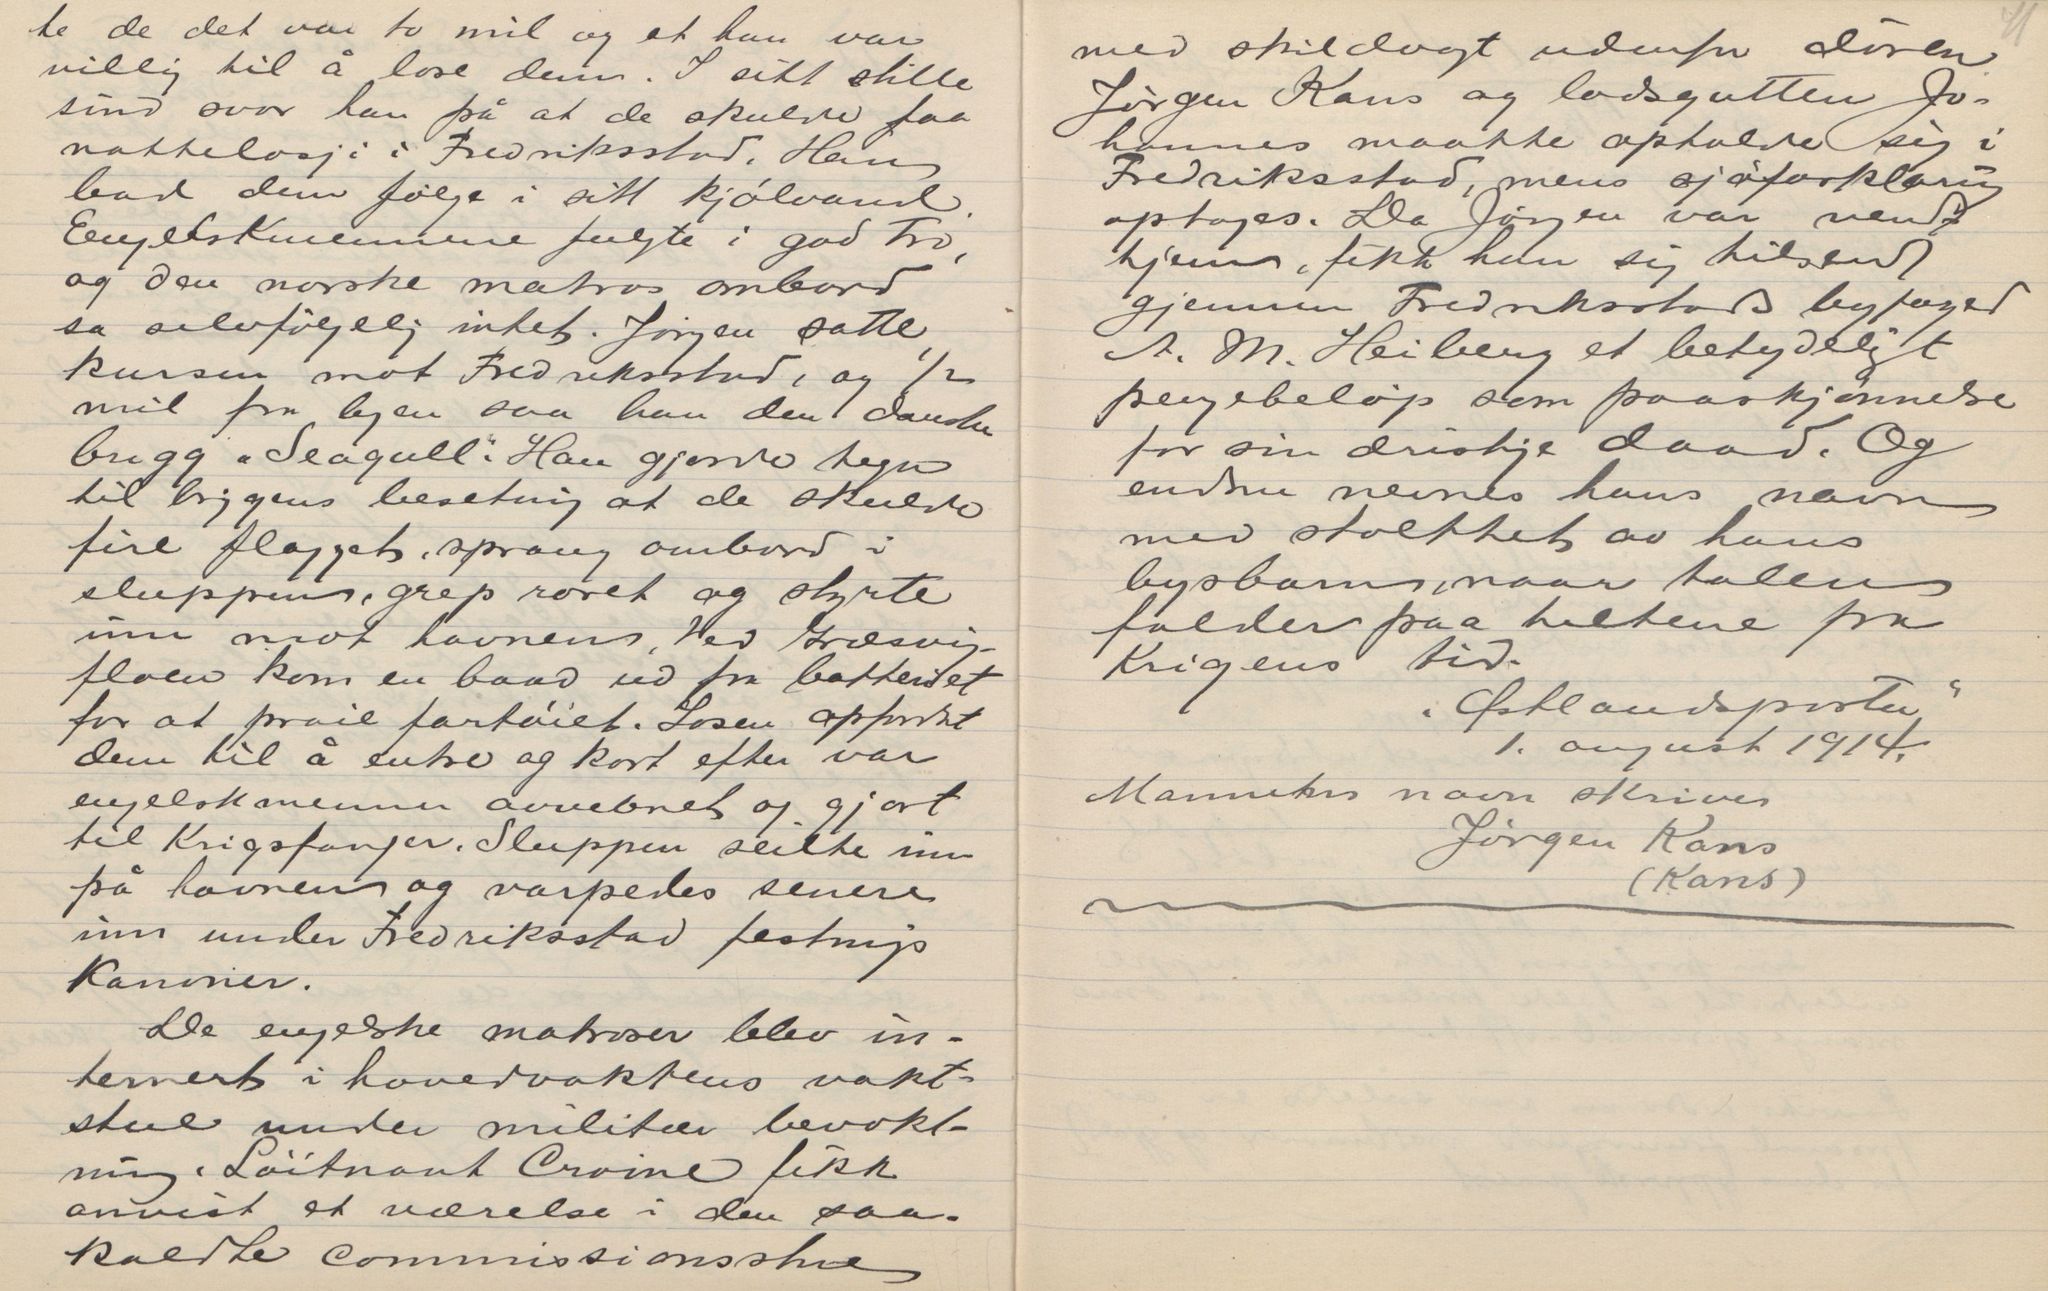 te de det var to mil og et han var
villig til å lose dem. I sitt stille
sind svor han på at de skulde faa
nattelosji i Fredriksstad. Han
bad dem følge i sitt kjølvand.
Eengelskmennene fulgte i god tro,
og den norske matros ombord
sa selvfølgelig intet. Jörgen satte
kursen mot Fredriksstad, og 1/2
mil fra byen saa han den danske
brigg "Seagull". Han gjorde tegn
til briggens besetning at de skulde
fire flagget, sprang ombord i
sluppen, grep roret og styrte
inn mot havnen. Ved Græsvig-
floen kom en baad ud fra batteriet
for at praie fartöiet. Losen opfordret
dem til å entre og kort efter var
engelskmennene avvebnet og gjort
til Krigsfanger. Sluppen seilte inn
på havnen og varpedes senere
inn under Fredriksstad festnings
Kanoner.
De engelske matroser blev in-
ternert i hovedvaktens vakt-
stue under militær bevokt-
ning. Löitnant Croine fikk
anvist et værelse i den saa-
kaldte commissionsstue
41
med skildvagt udenfor dören
Jörgen Kans og lodsgutten Jo-
hannes maatte opholde sig i
Fredriksstad, mens sjöforklaring
optoges. Da Jörgen var vendt
hjem, fikk han sig tilsendt
gjennem Fredriksstads byfoged
A. M. Heiberg et betydeligt
pengebelöp som paaskjønnelse
for sin dristige daad. Og
endnu nevnes hans navn
med stolthet av hans
bysbarn, naar talen
falder paa heltene fra
Krigens tid.
"Østlandsposten"
1. august 1914.
Mannens navn skrives
Jörgen Kans
(Kans)